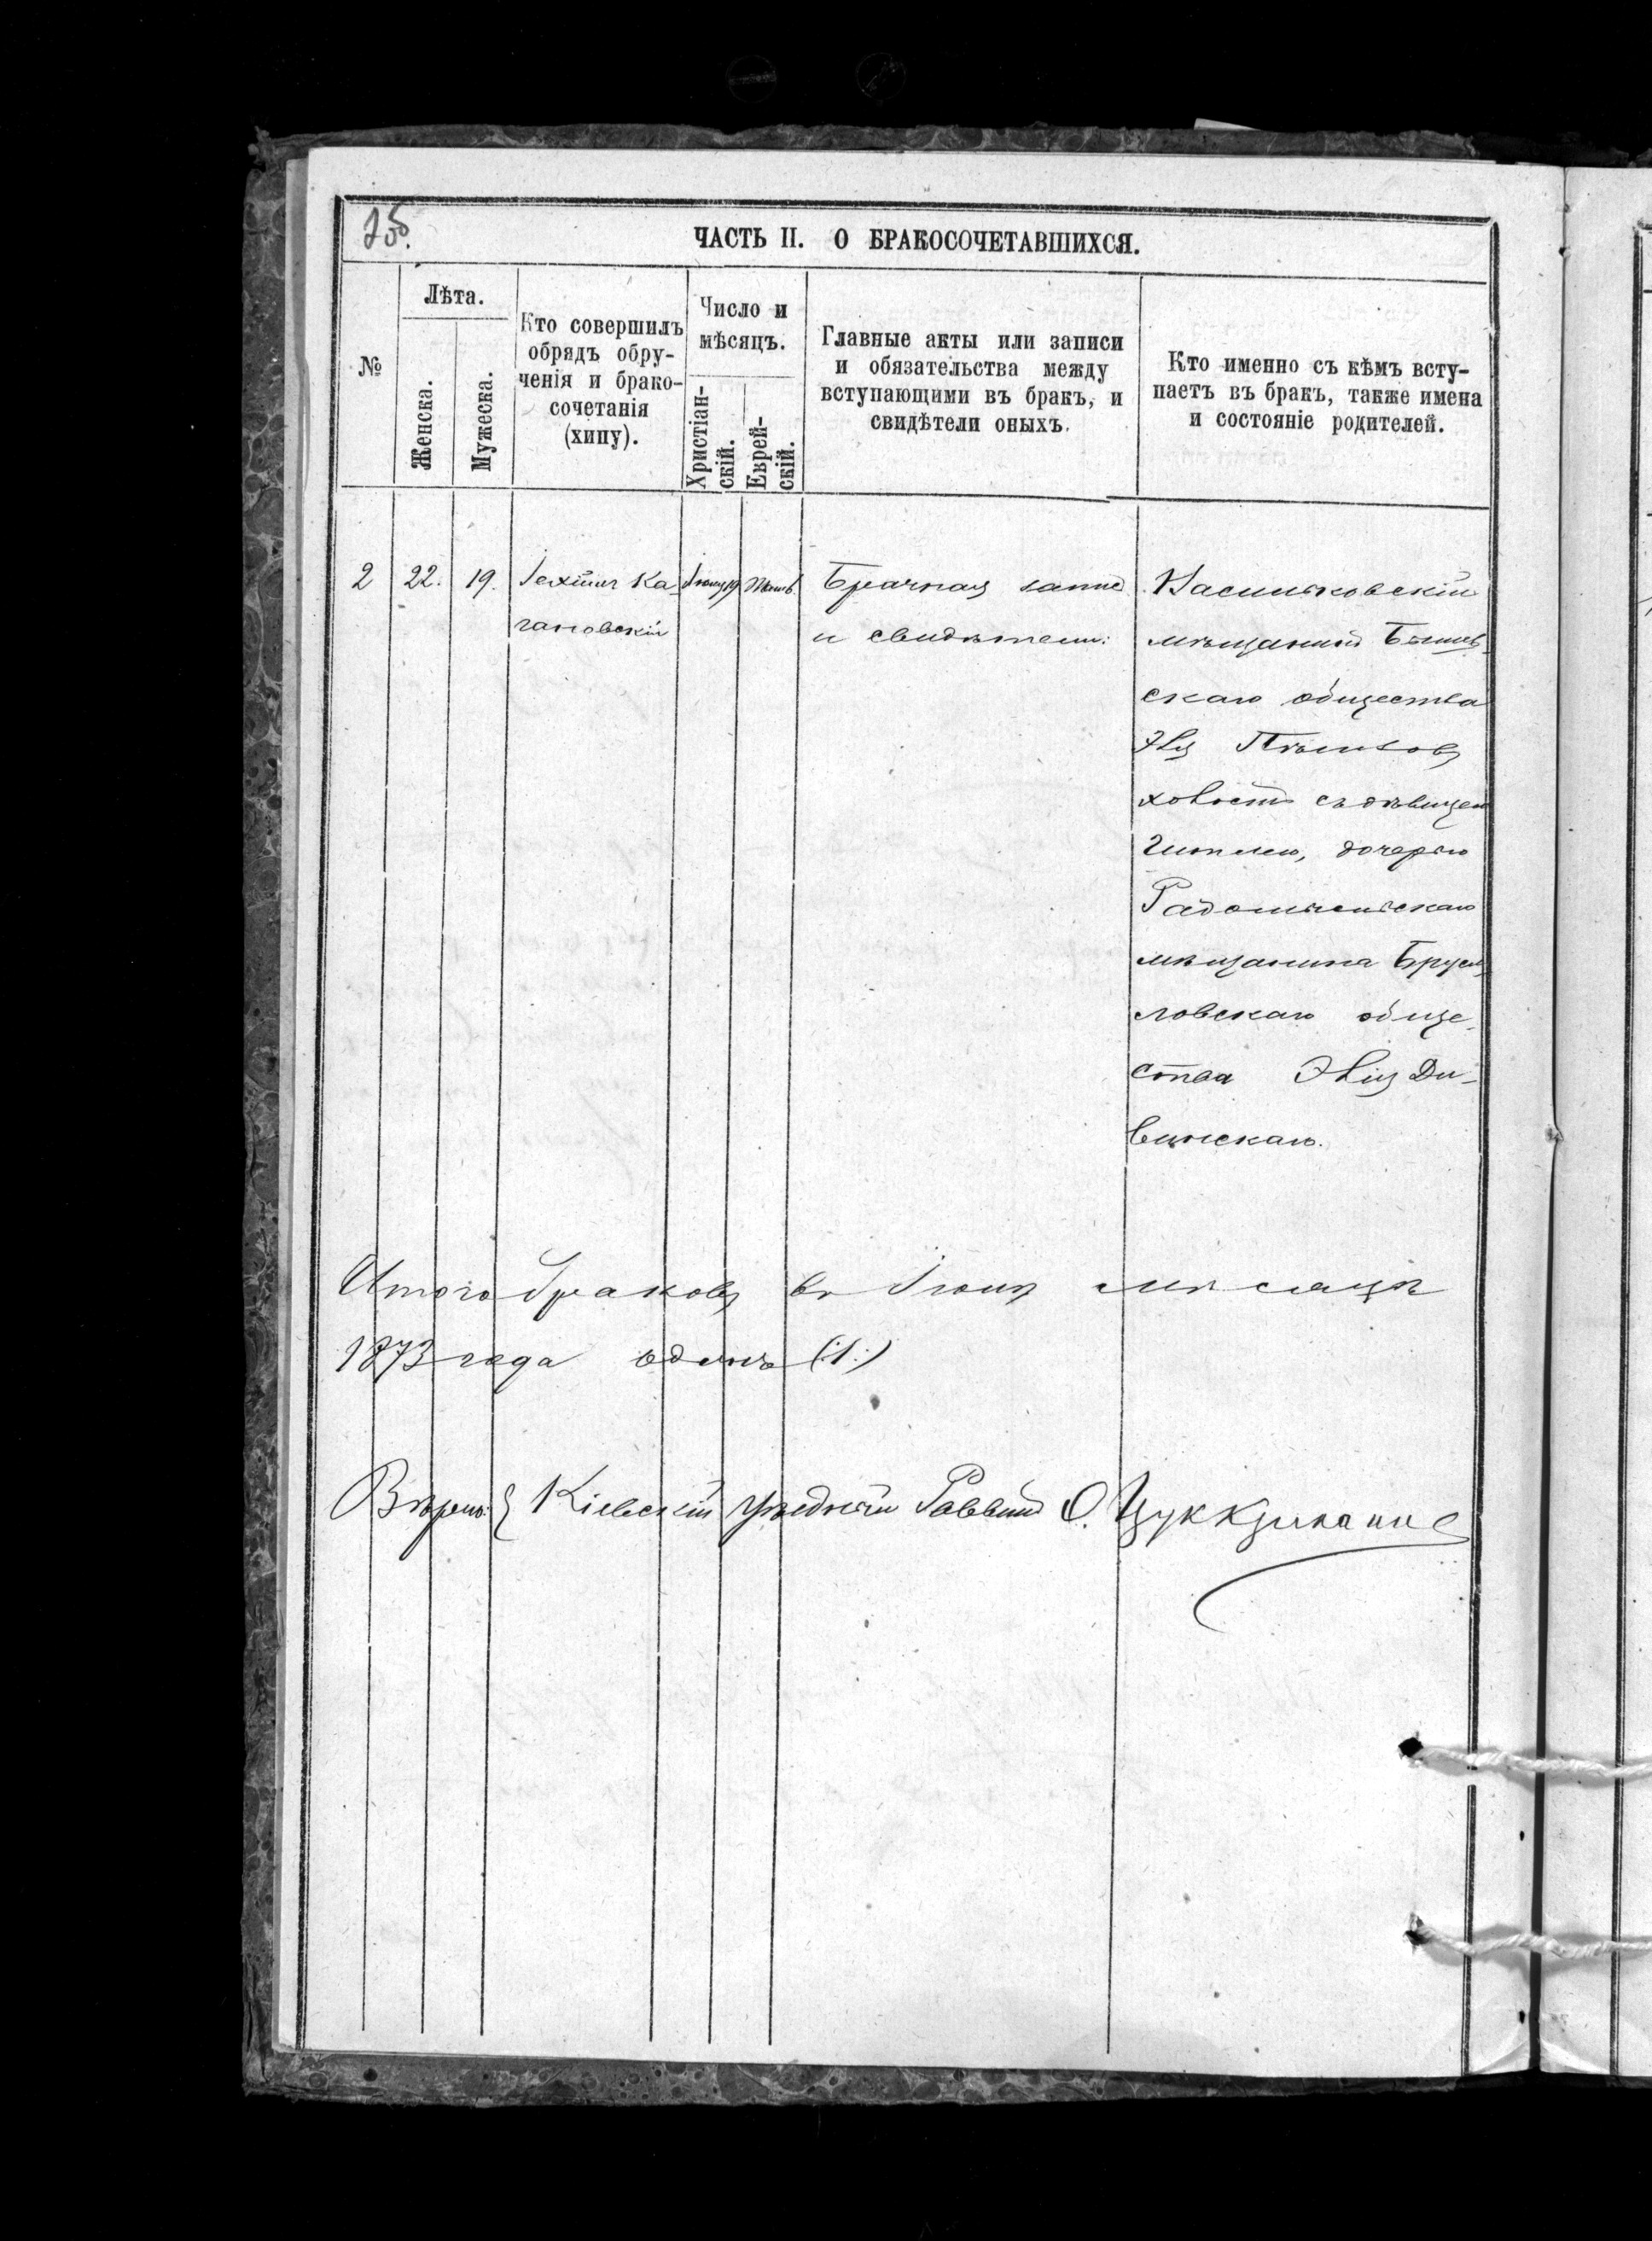 25.
ЧАСТЬ II. О БРАКОСОЧЕТАВШИХСЯ.
№
Лѣта.
Женска.
Мужеска.
Кто совершилъ
обрядъ обру-
ченія и брако-
сочетанія
(хипу).
Число и
мѣсяцъ.
Христіан-
скій.
Еврей-
скій.
Главные акты или записи
и обязательства между
вступающими въ бракъ, и
свидѣтели оныхъ.
Кто именно съ кѣмъ всту-
паетъ въ бракъ, также имена
и состояніе родителей.
2 22. 19. Ка
гановскій
Брачная запись
и свидѣтели:
Васильковскій
мѣщанинъ Бышев-
скаго общества
съ дѣвицею
Гитлею, дочерью
Радомысльскаго
мѣщанина Бруси-
ловскаго обще-
ства Ди-
винскаго.
Итого браковъ въ Іюнѣ мѣсяцѣ
1873 года одинъ (:1:)
Вѣрно: Кіевскій уѣздный Раввинъ О. Цуккерманъ